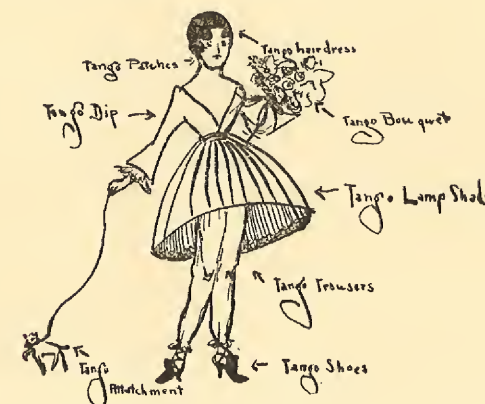 Tango hairdress
Tango Patches
Tango Dip
Tango Bouquet
Tango Lamp Shad
Tango Trousers
Tango Shoes
Tango
Attatchment